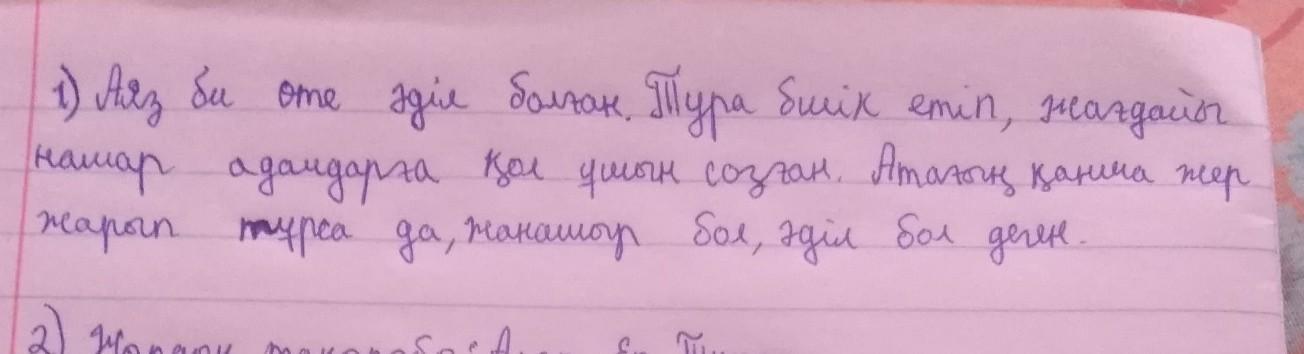 1) Аяз би өте әділ болған. Тура билік етіп, жағдайы
нашар адамдарға қол ұшын созған. Атағың қанша жер
жарып тұрса да, жанашыр бол, әділ бол деген.
2)